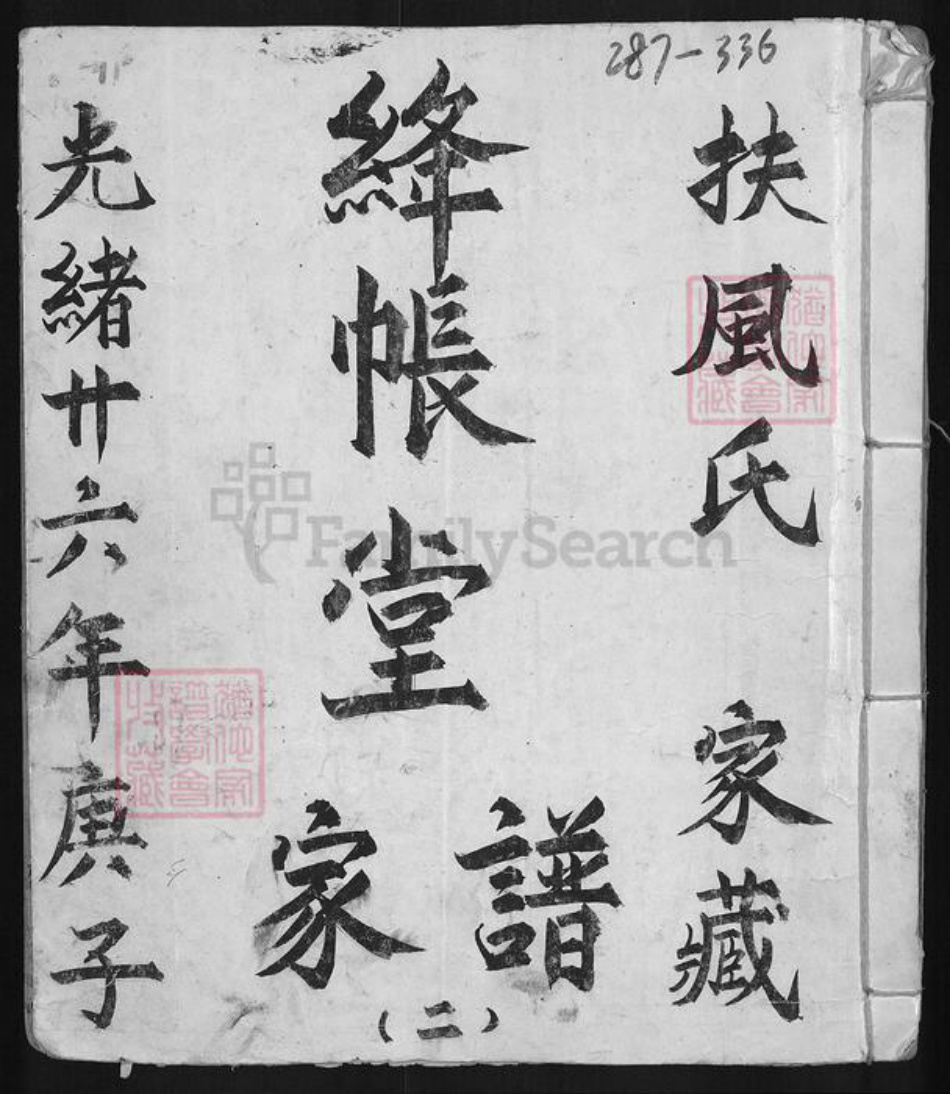 287-336
扶風氏 家藏
絳帳堂
家譜
(二)
光緒廿六年庚子
FamilySearch